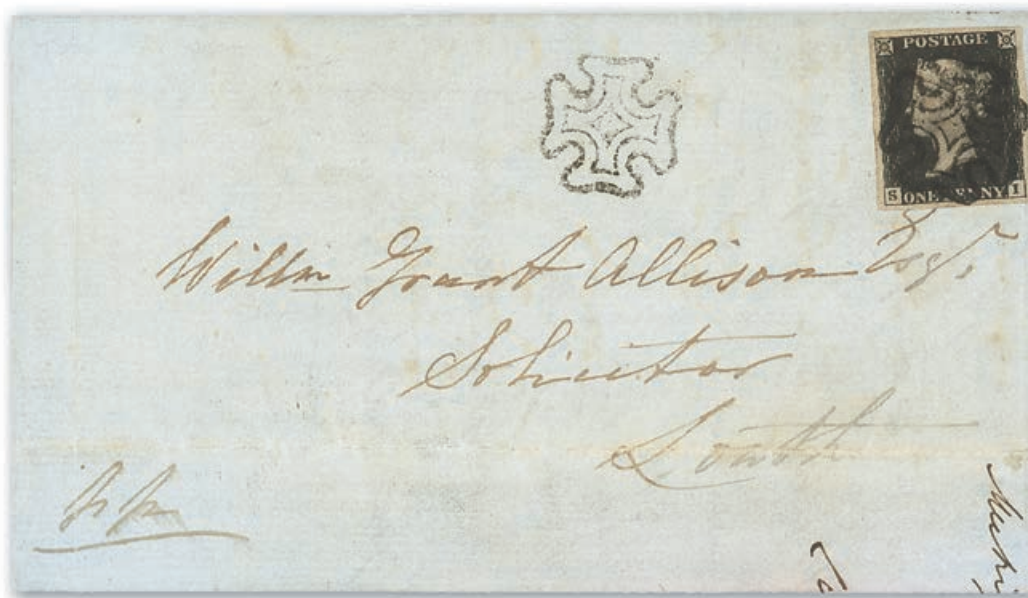 POSTAGE
S ONE PENNY I
Willm Grant Allison Esqr.
Solicitor
Louth